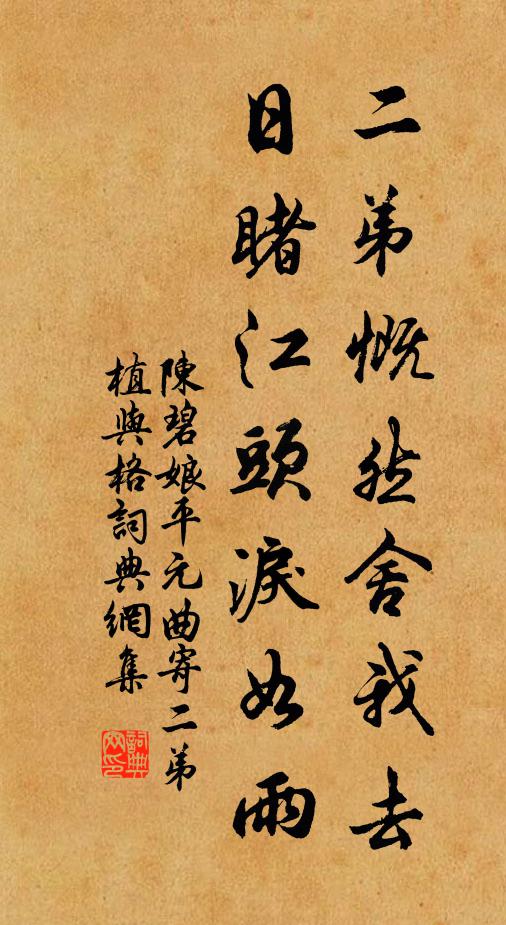 二弟慨然舍我去
日睹江頭淚如雨
陳碧娘平元曲寄二弟
植與格詞典網集
詞典網印